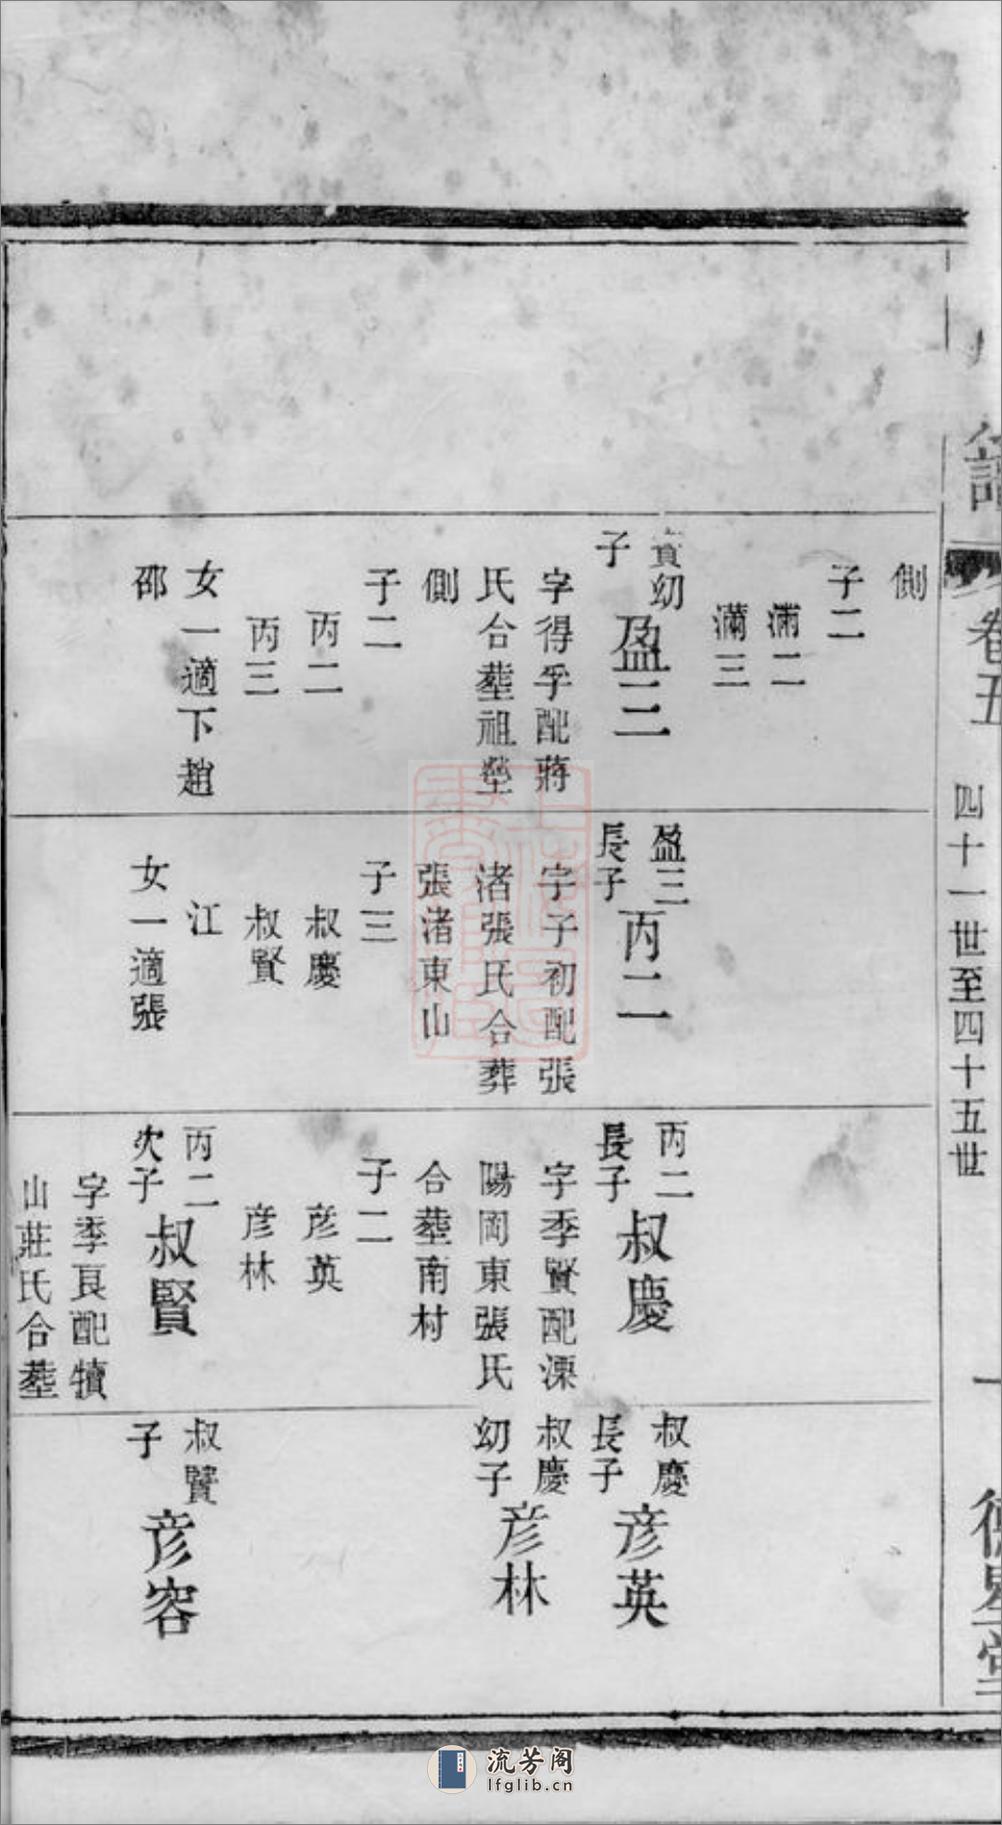 譜
卷五
四十一世至四十五世
一
德星堂
側
子二
滿二
滿三
實幼
子
盈三
字得孚配蔣
氏合塟祖塋
側
子二
丙二
丙三
女一適下趙
邵
盈三
長子
丙二
字子初配張
渚張氏合葬
張渚東山
子三
叔慶
叔賢
江
女一適張
丙二
長子
叔慶
字季賢配溧
陽岡東張氏
合塟南村
子二
彦英
彦林
丙二
次子
叔賢
字季良配犢
山莊氏合塟
叔慶
長子
彦英
叔慶
幼子
彦林
叔賢
子
彦容
流芳阁
lfglib.cn